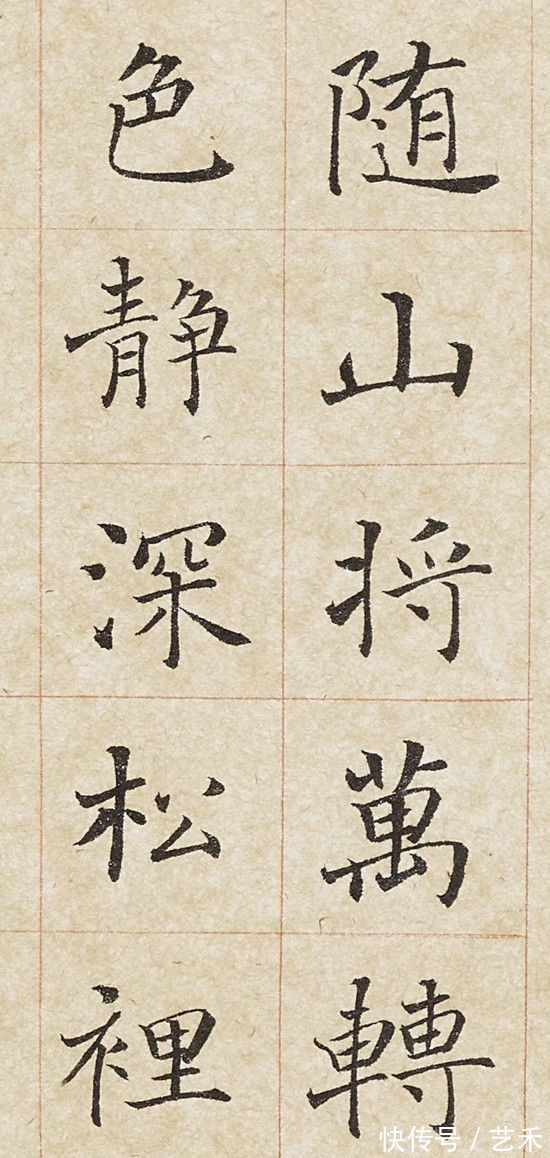 随山将萬轉
色静深松裡
快传号／艺禾